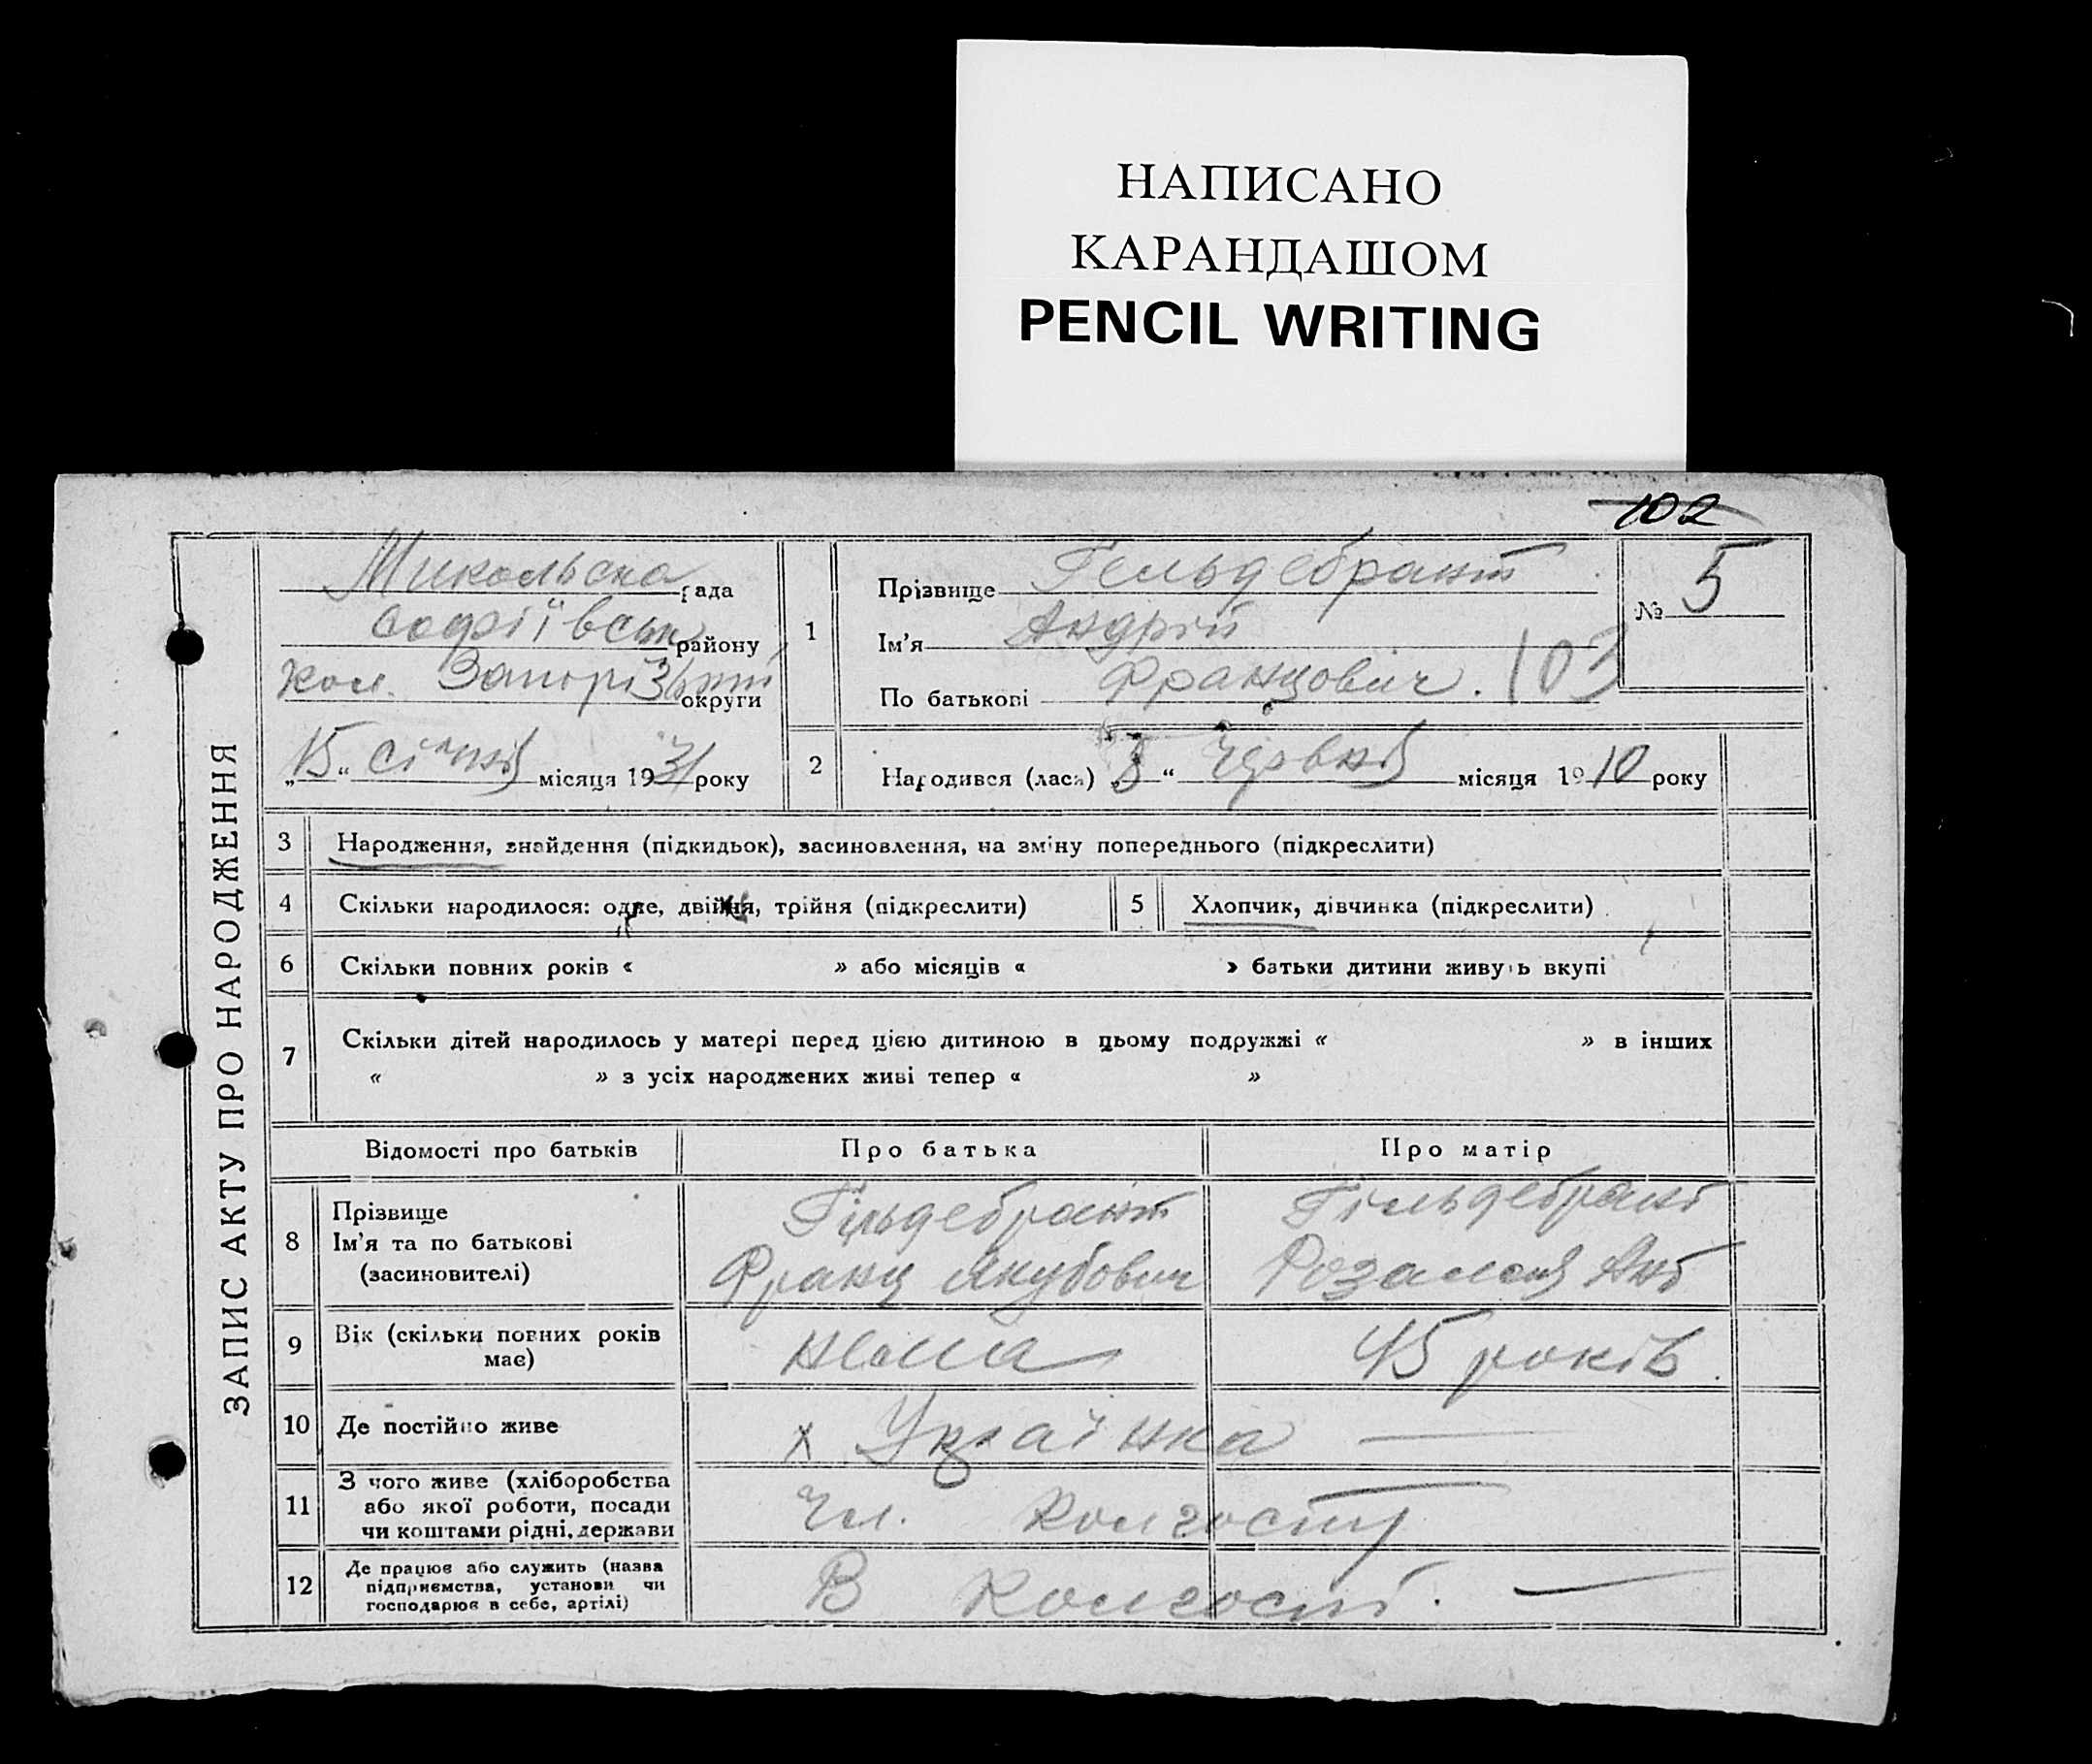 НАПИСАНО
КАРАНДАШОМ
PENCIL WRITING
102
ЗАПИС АКТУ ПРО НАРОДЖЕННЯ
Микольска рада
Софіївськ району
кол. Запоріз округи
„15“ січня місяця 1931 року
1
Прізвище Гельдебрант
Ім'я Андрій
По батькові Францович. 103
№ 5
2
Народився (лася) „8“ Червня місяця 1910 року
3 Народження, знайдення (підкидьок), засиновлення, на зміну попереднього (підкреслити)
4 Скільки народилося: одне, двійня, трійня (підкреслити)
5 Хлопчик, дівчинка (підкреслити)
6 Скільки повних років « » або місяців « » батьки дитини живуть вкупі
7 Скільки дітей народилось у матері перед цією дитиною в цьому подружжі « » в інших
« » з усіх народжених живі тепер « »
Відомості про батьків Про батька Про матір
8 Прізвище
Ім'я та по батькові
(засиновителі)
Гільдебрант
Франц Якубович
Гільдебрант
Розалия Ант
9 Вік (скільки повних років
має)
нема 45 років
10 Де постійно живе х Українка —
11 З чого живе (хліборобства
або якої роботи, посади
чи коштами рідні, держави
Чл. Колгоспу
12 Де працює або служить (назва
підприємства, установи чи
господарює в себе, артілі)
В Колгоспі. —